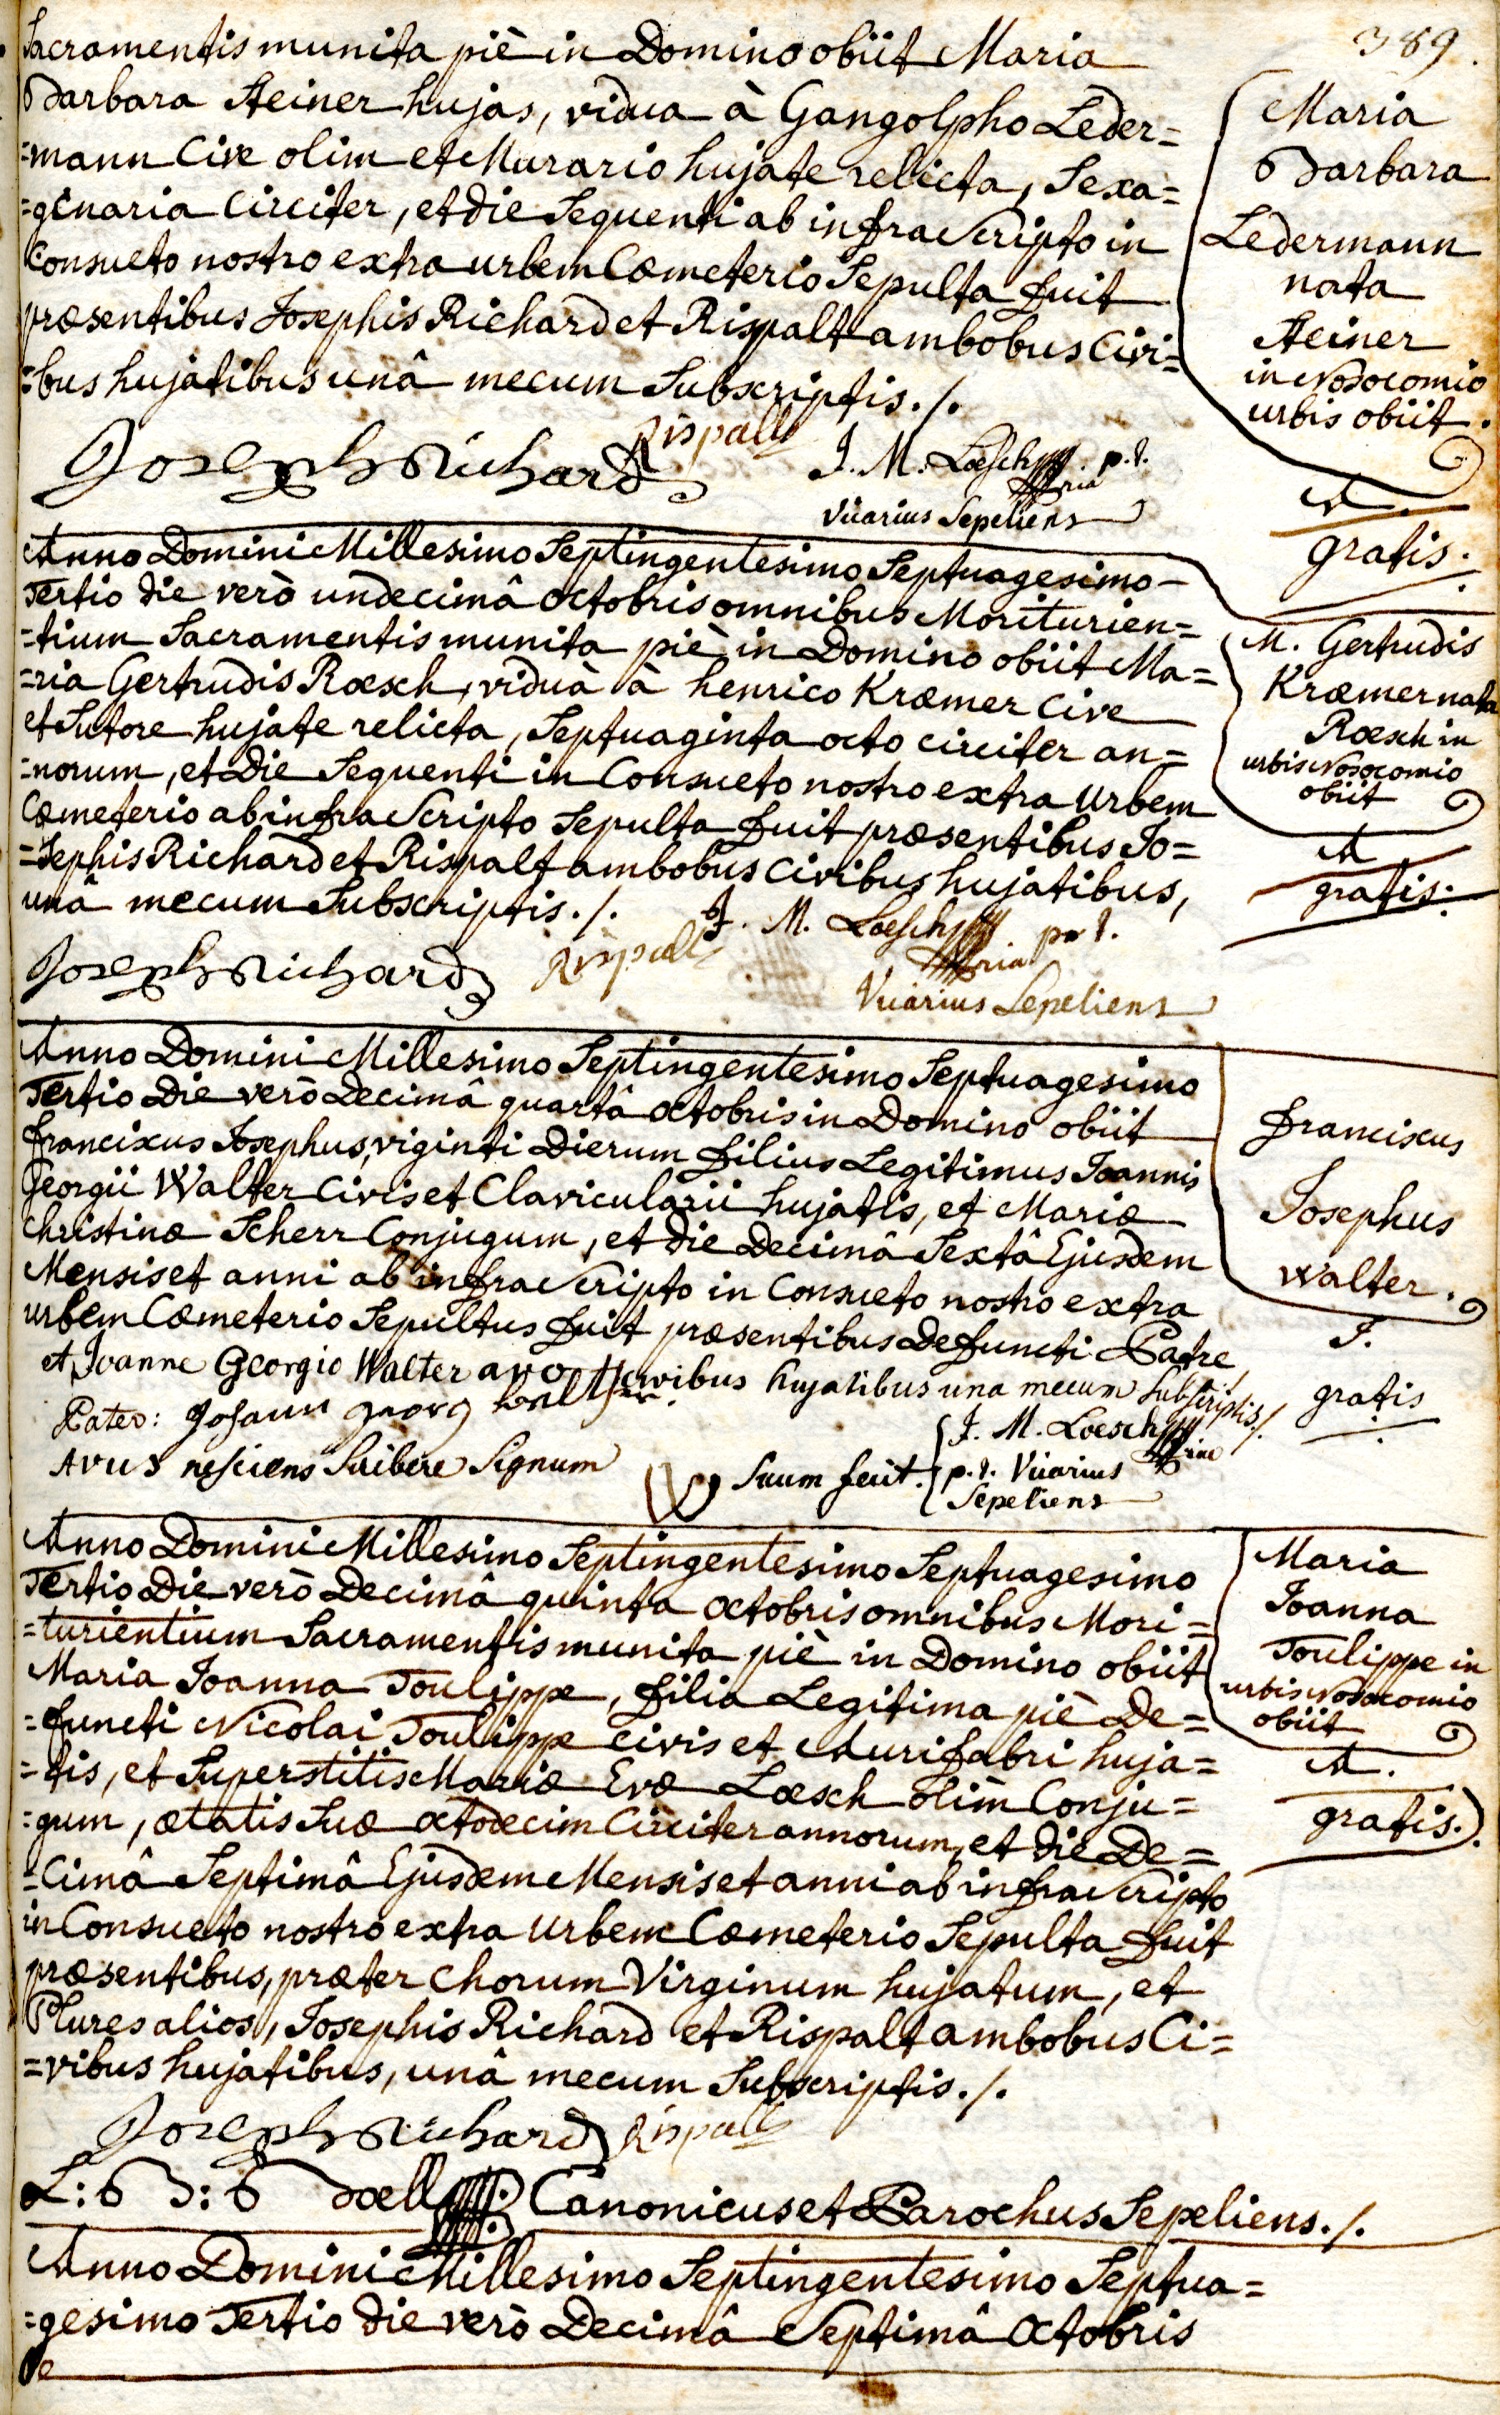 389.
Sacramentis munita piè in Domino obiit Maria
Barbara Steiner hujas, vidua à Gangolpho Leder=
=mann Cive olim et Murario hujate relicta, Sexa=
=genaria Circiter, et die Sequenti ab infra Scripto in
Consueto nostro extra urbem Cœmeterio Sepulta fuit
præsentibus Josephis Richard et Rispalt ambobus Civi=
=bus hujatibus unâ mecum Subscriptis ./.
Joseph Richard
Rispalt
J. M. Loesch p.t.
Vicarius Sepeliens
Maria
Barbara
Ledermann
nata
Steiner
in Nosocomio
urbis obiit.
A.
gratis.
Anno Domini Millesimo Septingentesimo Septuagesimo
Tertio die verò undecimâ octobris omnibus Moriturien=
=tium Sacramentis munita piè in Domino obiit Ma=
=ria Gertrudis Roesch, viduà à henrico Kræmer Cive
et Sutore hujate relicta, Septuaginta octo circiter an=
=norum, et Die Sequenti in Consueto nostro extra Urbem
Cœmeterio ab infra Scripto Sepulta fuit præsentibus Jo=
=sephis Richard et Rispalt ambobus Civibus hujatibus,
unâ mecum Subscriptis ./.
Joseph Richard
Rispalt
J. M. Loesch p.t.
Vicarius Sepeliens
M. Gertrudis
Kræmer nata
Roesch in
urbis Nosocomio
obiit
A
gratis.
Anno Domini Millesimo Septingentesimo Septuagesimo
Tertio Die verò Decimâ quartâ octobris in Domino obiit
franciscus Josephus, viginti Dierum filius Legitimus Joannis
Georgii Walter Civis et Clavicularii hujatis, et Mariæ
Christinæ Scherr Conjugum, et die Decimâ Sextâ Ejusdem
Mensis et anni ab infra Scripto in Consueto nostro extra
urbem Cœmeterio Sepultus fuit præsentibus Defuncti Patre
et Joanne Georgio Walter avo civibus hujatibus una mecum Subscriptis ./.
Pater: Johann Georg Walther.
Avus nesciens Scribere Signum
Suum fecit.
J. M. Loesch
p.t. Vicarius
Sepeliens
franciscus
Josephus
Walter.
J.
gratis
Anno Domini Millesimo Septingentesimo Septuagesimo
Tertio Die verò Decimâ quinta octobris omnibus Mori=
=turientium Sacramentis munita piè in Domino obiit
Maria Joanna Toulippe, filia Legitima piè De=
=functi Nicolai Toulippe civis et Aurifabri huja=
=tis, et Superstitis Mariæ Evæ Loesch olim Conju=
=gum, ætatis Suæ octodecim Circiter annorum, et die De=
=cimâ Septimâ Ejusdem Mensis et anni ab infra Scripto
in Consueto nostro extra Urbem Cœmeterio Sepulta fuit
præsentibus, præter Chorum Virginum hujatum, et
Plures alios, Josephis Richard et Rispalt ambobus Ci=
=vibus hujatibus, unâ mecum Subscriptis ./.
Joseph Richard
Rispalt
Canonicus et Parochus Sepeliens ./.
Maria
Joanna
Toulippe in
urbis Nosocomio
obiit
A.
gratis.
Anno Domini Millesimo Septingentesimo Septua=
=gesimo Tertio die verò Decimâ Septimâ Octobris